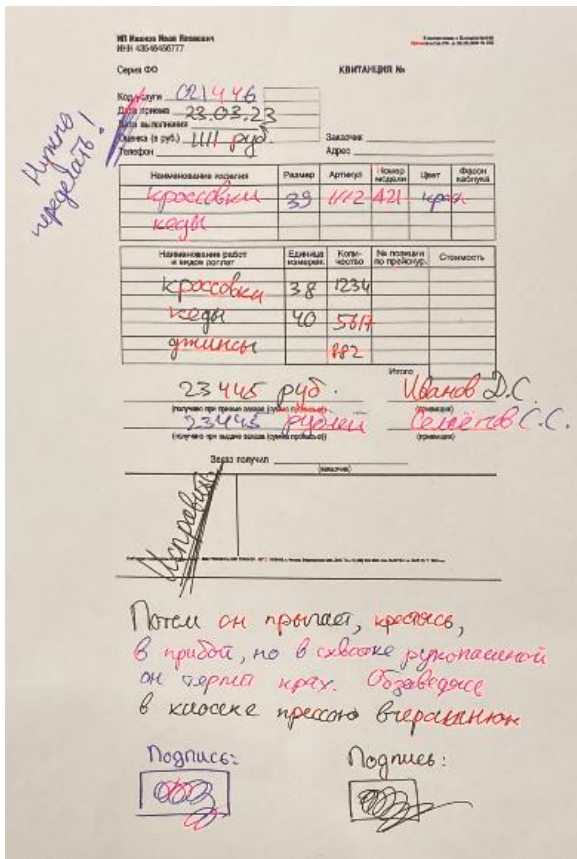 ИП Иванов Иван Иванович
ИНН 43546456777
Серия ФО
КВИТАНЦИЯ №
Код услуги 021446
Дата приема 23.03.23
Дата выполнения
Оценка (в руб.) 1111 руб.
Телефон
Заказчик
Адрес
Нужно
переделать!
Наименование изделия Размер Артикул Номер модели Цвет Фасон каблука
кроссовки 39 1112 421 крас.
кеды
Наименование работ и видов доплат Единица измерен. Количество № позиции по прейскур. Стоимость
кроссовки 38 1234
кеды 40 5617
джинсы 882
Итого
23 445 руб. Иванов Д.С.
(получено при приеме заказа (сумма прописью)) (приемщик)
23445 рублей С.С.
(получено при выдаче заказа (сумма прописью)) (приемщик)
Заказ получил
(заказчик)
Исправить
Потом он прыгает, крестясь,
в прибой, но в схватке рукопашной
он терпит крах. Обзаведясь
в киоске прессою вчерашнюю
Подпись: Подпись: